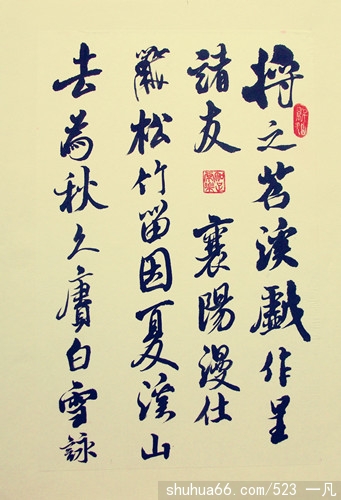 將之苕溪戲作呈
諸友 襄陽漫仕
松竹留因夏溪山
去為秋久賡白雪詠
shuhua66.com/523 一凡